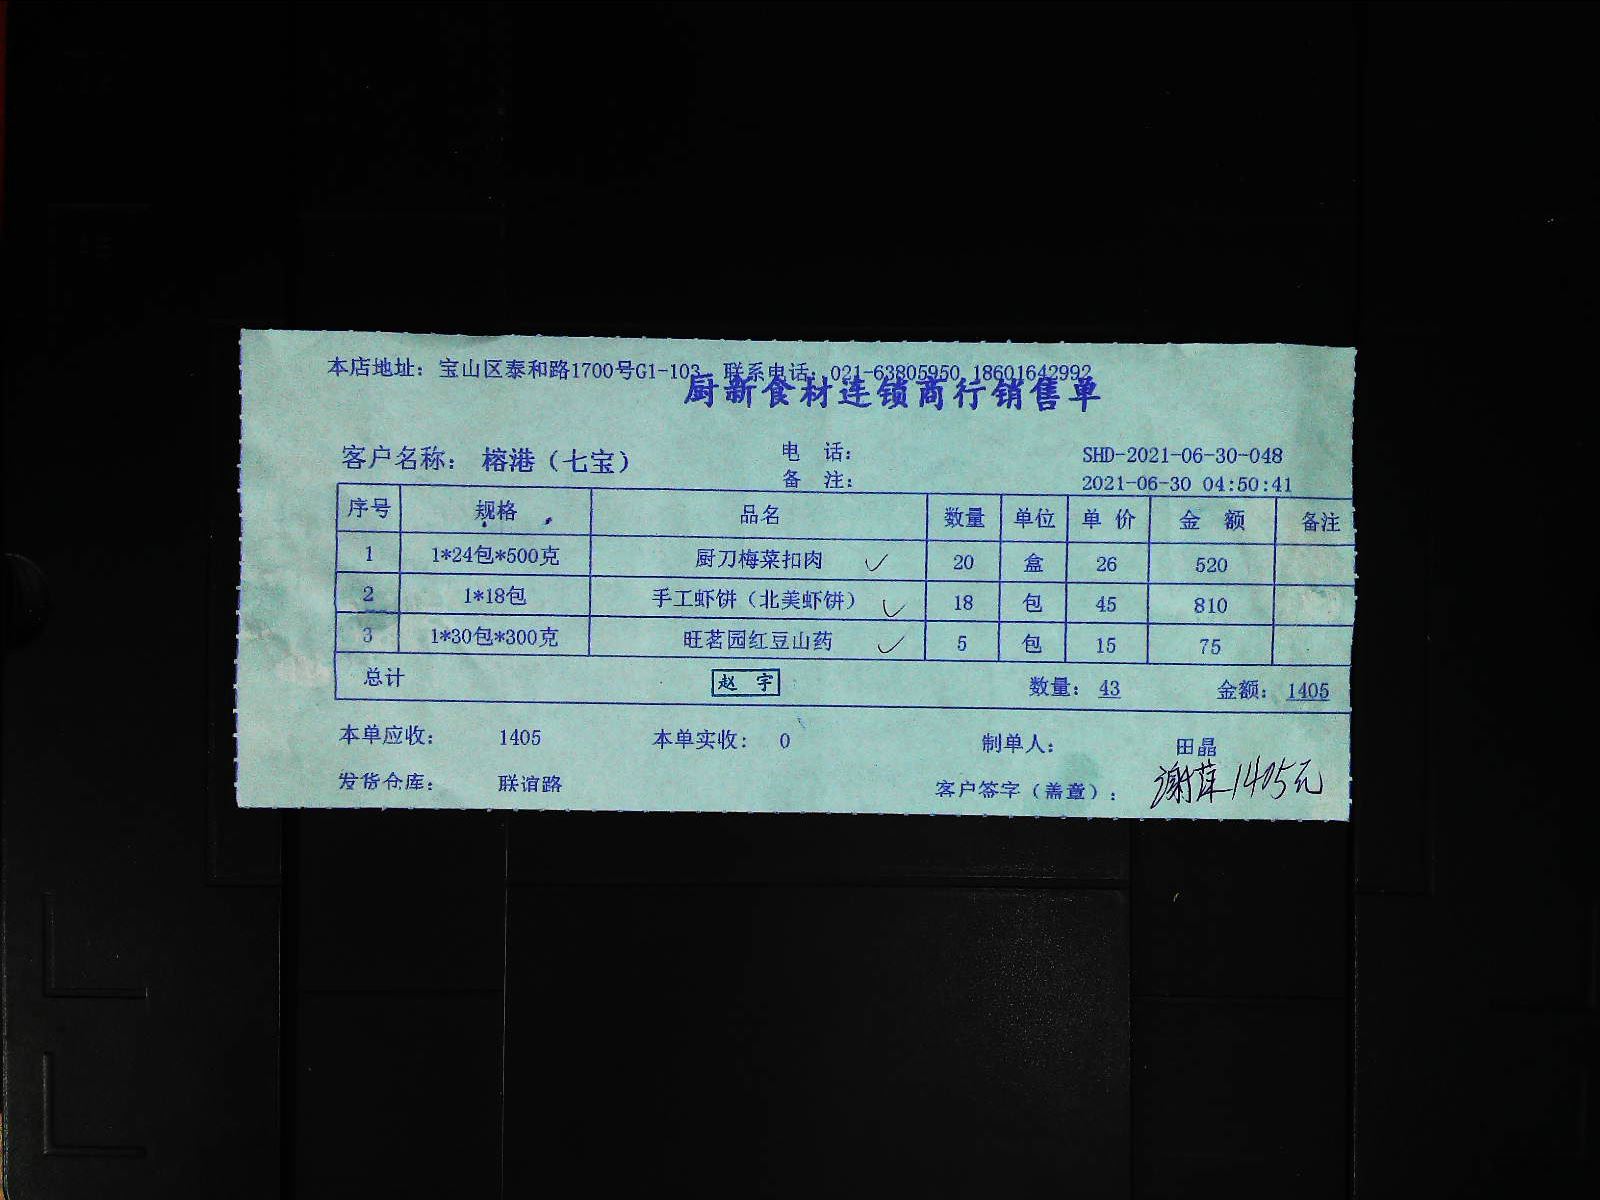 本店地址：宝山区泰和路1700号G1-103 联系电话：021-63805950 18601642992
厨新食材连锁商行销售单
客户名称： 榕港（七宝） 电 话： SHD-2021-06-30-048
备 注： 2021-06-30 04:50:41
序号 规格 品名 数量 单位 单 价 金 额 备注
1 1*24包*500克 厨刀梅菜扣肉 ✓ 20 盒 26 520
2 1*18包 手工虾饼（北美虾饼） ✓ 18 包 45 810
3 1*30包*300克 旺茗园红豆山药 ✓ 5 包 15 75
总计 赵 宇 数量： 43 金额： 1405
本单应收： 1405 本单实收： 0 制单人： 田晶
发货仓库： 联谊路 客户签字（盖章）： 谢萍1405元